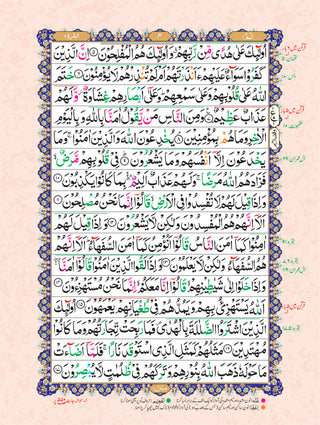 اُولٰٓئِكَ عَلٰى هُدًى مِّنْ رَّبِّهِمْ وَاُولٰٓئِكَ هُمُ الْمُفْلِحُوْنَ ۝۵ اِنَّ الَّذِيْنَ
كَفَرُوْا سَوَآءٌ عَلَيْهِمْ ءَاَنْذَرْتَهُمْ اَمْ لَمْ تُنْذِرْهُمْ لَا يُؤْمِنُوْنَ ۝۶ خَتَمَ
اللّٰهُ عَلٰى قُلُوْبِهِمْ وَعَلٰى سَمْعِهِمْ وَعَلٰٓى اَبْصَارِهِمْ غِشَاوَةٌ وَّلَهُمْ
عَذَابٌ عَظِيْمٌ ۝۷ وَمِنَ النَّاسِ مَنْ يَّقُوْلُ اٰمَنَّا بِاللّٰهِ وَبِالْيَوْمِ
الْاٰخِرِ وَمَا هُمْ بِمُؤْمِنِيْنَ ۝۸ يُخٰدِعُوْنَ اللّٰهَ وَالَّذِيْنَ اٰمَنُوْا وَمَا
يَخْدَعُوْنَ اِلَّآ اَنْفُسَهُمْ وَمَا يَشْعُرُوْنَ ۝۹ فِيْ قُلُوْبِهِمْ مَّرَضٌ
فَزَادَهُمُ اللّٰهُ مَرَضًا وَلَهُمْ عَذَابٌ اَلِيْمٌۢ بِمَا كَانُوْا يَكْذِبُوْنَ ۝۱۰
وَاِذَا قِيْلَ لَهُمْ لَا تُفْسِدُوْا فِي الْاَرْضِ قَالُوْٓا اِنَّمَا نَحْنُ مُصْلِحُوْنَ ۝۱۱
اَلَآ اِنَّهُمْ هُمُ الْمُفْسِدُوْنَ وَلٰكِنْ لَّا يَشْعُرُوْنَ ۝۱۲ وَاِذَا قِيْلَ لَهُمْ
اٰمِنُوْا كَمَآ اٰمَنَ النَّاسُ قَالُوْٓا اَنُؤْمِنُ كَمَآ اٰمَنَ السُّفَهَآءُ اَلَآ اِنَّهُمْ
هُمُ السُّفَهَآءُ وَلٰكِنْ لَّا يَعْلَمُوْنَ ۝۱۳ وَاِذَا لَقُوا الَّذِيْنَ اٰمَنُوْا قَالُوْٓا اٰمَنَّا
وَاِذَا خَلَوْا اِلٰى شَيٰطِيْنِهِمْ قَالُوْٓا اِنَّا مَعَكُمْ اِنَّمَا نَحْنُ مُسْتَهْزِءُوْنَ ۝۱۴
اَللّٰهُ يَسْتَهْزِئُ بِهِمْ وَيَمُدُّهُمْ فِيْ طُغْيَانِهِمْ يَعْمَهُوْنَ ۝۱۵ اُولٰٓئِكَ
الَّذِيْنَ اشْتَرَوُا الضَّلٰلَةَ بِالْهُدٰى فَمَا رَبِحَتْ تِّجَارَتُهُمْ وَمَا كَانُوْا
مُهْتَدِيْنَ ۝۱۶ مَثَلُهُمْ كَمَثَلِ الَّذِي اسْتَوْقَدَ نَارًا فَلَمَّآ اَضَآءَتْ
مَا حَوْلَهٗ ذَهَبَ اللّٰهُ بِنُوْرِهِمْ وَتَرَكَهُمْ فِيْ ظُلُمٰتٍ لَّا يُبْصِرُوْنَ ۝۱۷